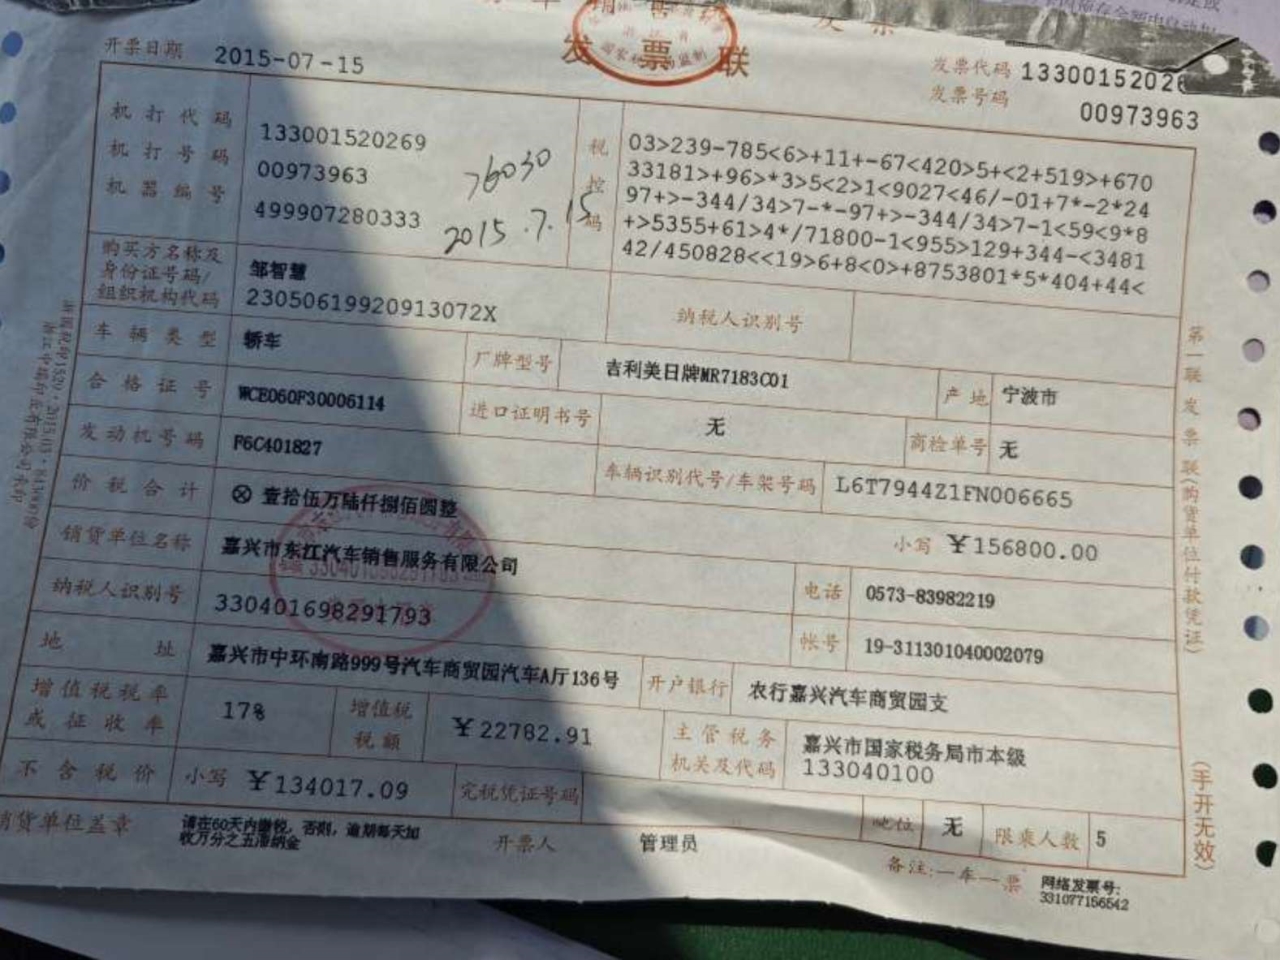 发票联
开票日期 2015-07-15
发票代码 13300152026
发票号码 00973963
机打代码 133001520269
机打号码 00973963
机器编号 499907280333
76030
2015.7.15
税控码
03>239-785<6>+11+-67<420>5+<2+519>+670
33181>+96>*3>5<2>1<9027<46/-01+7*-2*24
97+>-344/34>7-*-97+>-344/34>7-1<59<9*8
+>5355+61>4*/71800-1<955>129+344-<3481
42/450828<<19>6+8<0>+8753801*5*404+44<
购买方名称及身份证号码/组织机构代码
邹智慧
23050619920913072X
纳税人识别号
车辆类型 轿车 厂牌型号 吉利美日牌MR7183C01 产地 宁波市
合格证号 WCE060F30006114 进口证明书号 无 商检单号 无
发动机号码 F6C401827 车辆识别代号/车架号码 L6T7944Z1FN006665
价税合计 ⊗ 壹拾伍万陆仟捌佰圆整 小写 ￥156800.00
销货单位名称 嘉兴市东江汽车销售服务有限公司 电话 0573-83982219
纳税人识别号 330401698291793 帐号 19-311301040002079
地址 嘉兴市中环南路999号汽车商贸园汽车A厅136号 开户银行 农行嘉兴汽车商贸园支
增值税税率或征收率 17% 增值税税额 ￥22782.91 主管税务机关及代码 嘉兴市国家税务局市本级
133040100
不含税价 小写 ￥134017.09 完税凭证号码 吨位 无 限乘人数 5
销货单位盖章 请在60天内缴税，否则，逾期每天加
收万分之五滞纳金
开票人 管理员 备注:一车一票 网络发票号:
331077156542
第一联 发票联(购货单位付款凭证)
(手开无效)